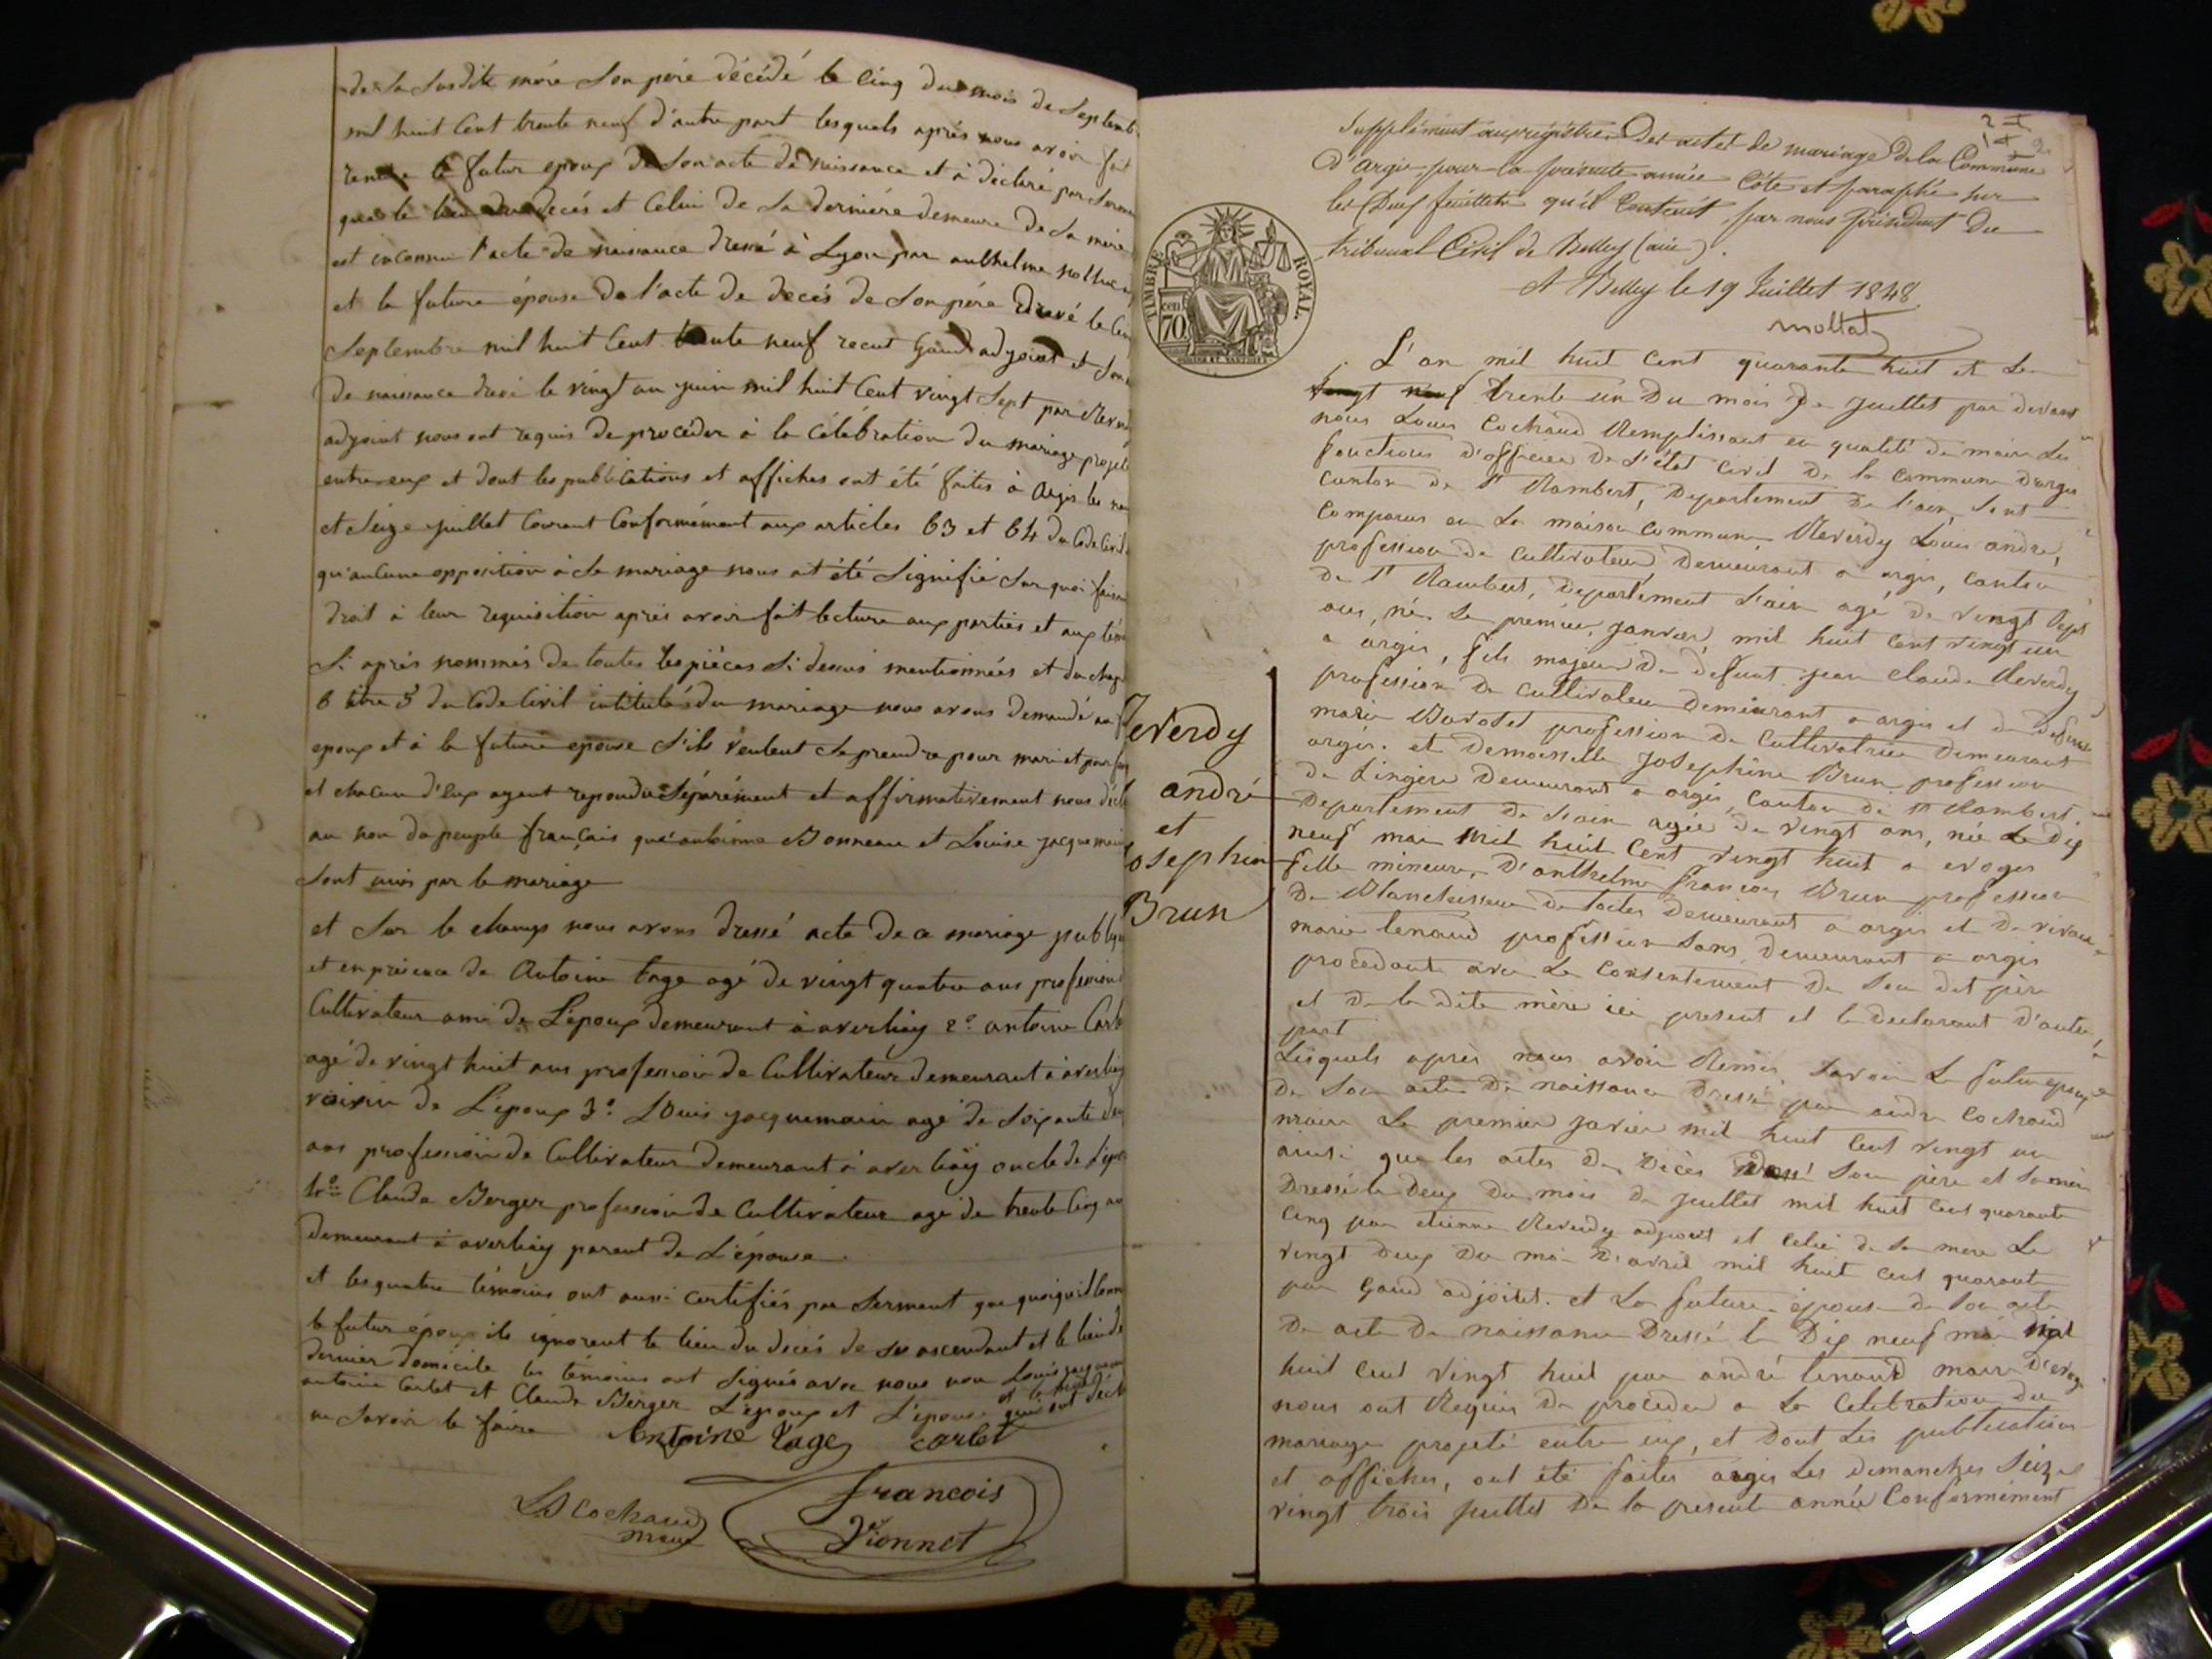 de la susdite mère son père décédé le cinq du mois de Septemb
mil huit Cent trente neuf d'autre part lesquels après nous avoir fait
le futur epoux de son acte de naissance et a déclaré par Serm
que le lieu du decés et Celui de la derniére demeure de la mère
est inconnu l'acte de naissance dressé à Lyon par anthelme
et la future épouse de l'acte de decés de son pére dressé le Cin
Septembre mil huit Cent trente neuf recut Gaud adjoint et son
de naissance dressé le vingt un juin mil huit Cent vingt Sept par Rever
adjoint nous ont requis de procéder à la Célébration du mariage projeté
entre eux et dont les publications et affiches ont été faites à Argis les
et Seize juillet Courant Conformément aux articles 63 et 64 du Code Civil
qu'aucune opposition à Se mariage nous ait été Signifié Sur quoi faisan
droit à leur requisition aprés avoir fait lecture aux parties et aux tém
Si aprés nommés de toutes les piéces Si dessus mentionnées et du chap
6 titre 5 du Code Civil intitulé du mariage nous avons demandé au f
epoux et à la future epouse S'ils veulent Se prendre pour mari et pour fem
et chacun d'eux ayant repondu Séparément et affirmativement nous décl
au nom du peuple français que antoinne Bonneau et Louise jacquemain
Sont unis par le mariage
et Sur le champs nous avons dressé acte de ce mariage publiqu
et en présence de Antoine Page agé de vingt quatre ans profession
Cultivateur ami de L'époux demeurant à averliaz 2º antoine Carl
agé de vingt huit ans profession de Cultivateur demeurant à averliaz
voisin de L'époux 3º Louis jacquemain agé de Soixante deu
ans profession de Cultivateur demeurant à averliaz oncle de L'épou
4º Claude Berger profession de Cultivateur agé de trente Cinq an
demeurant à averliaz parent de L'épouse
et les quatre témoins ont aussi certifiés par Serment que quoiqu'il Conn
le futur époux ils ignorent le lieu du decés de ses ascendant et le lieu de
dernier domicile les témoins ont Signés avec nous non Louis jacquem
antoine Carlet et Claude Berger L'époux et L'épouse qui ont décl
ne Savoir le faire Antoine Page carlet
LS Cochaud
maire
francois
Vionnet
Supplément au registre des actes de mariage de la Commune
d'Argis pour la présente année Côté et paraphé sur
les Deux feuillets qu'il Contient par nous Président du
tribunal Civil de Belley (ain).
A Belley le 19 Juillet 1848.
mollat
TIMBRE ROYAL.
70 cen
L'an mil huit cent quarante huit et Le
vingt neuf trente un Du mois De Juillet par devant
nous Louis Cochaud Remplissant en qualité de maire Les
fonctions d'officier De L'état Civil De la Commune D'argis
Canton De St Rambert, Departement De l'ain, Sont
Comparus en La maison commune Reverdy Louis andré,
profession de Cultivateur Demeurant a argis, Canton
De St Rambert, Departement L'ain agé De vingt Sept
ans, né Le premier, janvier, mil huit Cent vingt un
a argis, fils majeur De Defunt jean Claude Reverdy
profession De Cultivateur Demeurant a argis et de Defunte
marie profession De Cultivatrice Demeurant
argis. et Demoiselle JoSephine Brun profession
De Lingère Demeurant a argis, Canton De St Rambert.
Departement De L'ain agée De vingt ans, née Le Dix
neuf mai Mil huit Cent vingt huit a evoges
fille mineure, D'anthelme francois Brun profession
De Blanchisseur De toiles Demeurant a argis et De vivante
marie tenand profession Sans, Demeurant a argis
procedant avec Le Consentement De Son dit père
et De la dite mère ici present et le declarant D'autre,
part
Lesquels après nous avoir Remis, Savoir Le futur epoux
De Son acte De naissance Dressé par andré Cochaud
maire Le premier javier mil huit Cent vingt un
ainsi que les actes De Décès Son père et Sa mère
Dressé le Deux Du mois De Juillet mil huit Cent quarante
Cinq par etienne Reverdy adjoint et Celui De Sa mere Le
vingt Deux Du moi D'avril mil huit Cent quarante
par Gaud adjoint. et La future épouse De Son acte
De acte De naissance Dressé le Dix neuf mai mil
huit Cent vingt huit par andré tenand maire D'evoge
nous ont Requis De proceder a La Celebration Du
mariage projeté entre eux, et Dont Les publication
et affiches, ont été faites argis Les dimanches Seize
vingt trois juillet De la presente année Conformément
Reverdy
andré
et
Josephin
Brun